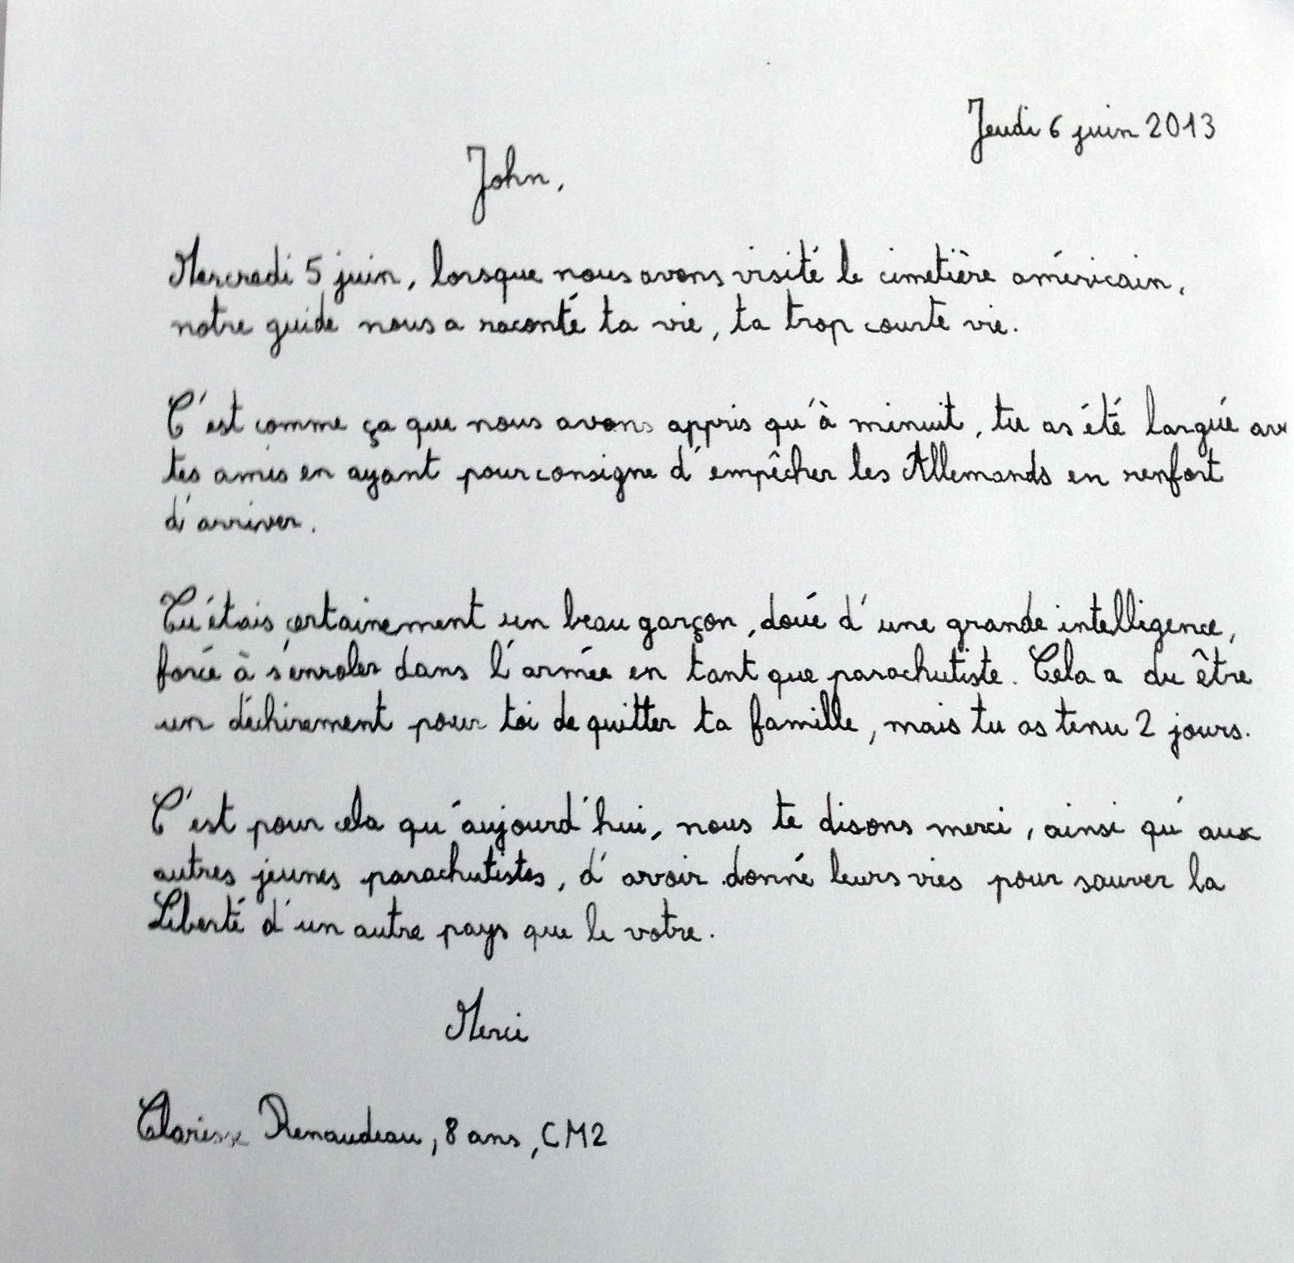 Jeudi 6 juin 2013
John,
Mercredi 5 juin, lorsque nous avons visité le cimetière américain,
notre guide nous a raconté ta vie, ta trop courte vie.
C'est comme ça que nous avons appris qu'à minuit, tu as été largué
tes amis en ayant pour consigne d'empêcher les Allemands en renfort
d'arriver.
Tu étais certainement un beau garçon, doué d'une grande intelligence,
forcé à s'enroler dans l'armée en tant que parachutiste. Cela a du être
un déchirement pour toi de quitter ta famille, mais tu as tenu 2 jours.
C'est pour cela qu'aujourd'hui, nous te disons merci, ainsi qu'aux
autres jeunes parachutistes, d'avoir donné leurs vies pour sauver la
Liberté d'un autre pays que le votre.
Merci
Clarisse Renaudeau, 8 ans, CM2